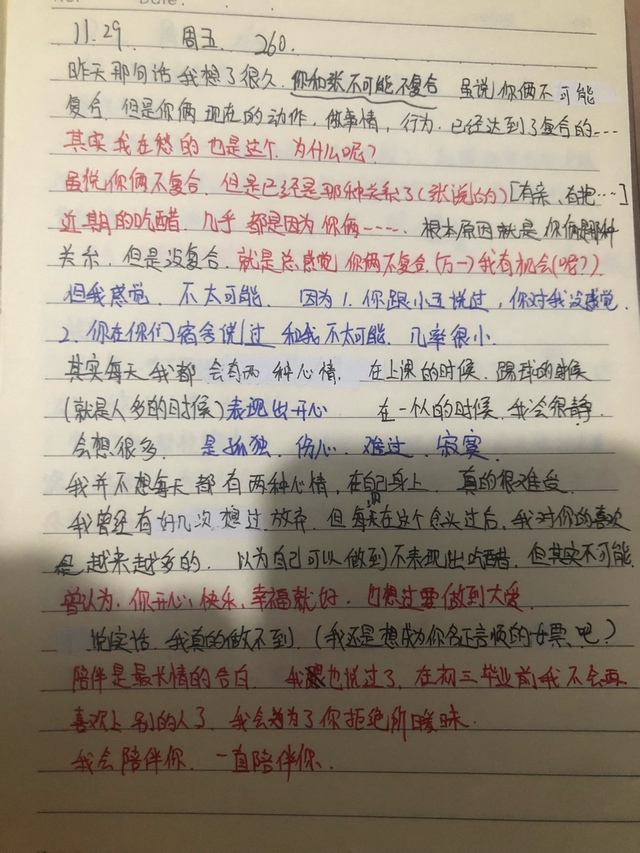 Date:
11.29 周五 260.
昨天那句话我想了很久.你和张不可能不复合 虽说你俩不可能
复合.但是你俩现在的动作,做事情,行为.已经达到了复合的----
其实我在愁的也是这个.为什么呢?
虽说你俩不复合.但是已经是那种关系了(张说的)[有亲、有抱…]
近期的吃醋.几乎都是因为你俩-----. 根本原因就是你俩是那种
关系,但是没复合.就是总感觉你俩不复合.(万一)我有机会(呢?)
但我感觉.不太可能. 因为1.你跟小五说过,你对我没感觉.
2.你在你们宿舍说过和我不太可能.几率很小.
其实每天我都会有两种心情. 在上课的时候.踢球的时候
(就是人多的时候)表现出开心 在一个人的时候.我会很静.
会想很多. 是孤独. 伤心. 难过. 寂寞.
我并不想每天都有两种心情,在自己身上. 真的很难受.
我曾经有好几次想过放弃.但每天在这个念头过后.我对你的喜欢
是越来越多的. 以为自己可以做到不表现出吃醋.但其实不可能.
曾认为.你开心,快乐,幸福就好.也想过要做到大爱.
说实话.我真的做不到.(我还是想成为你名正言顺的女票吧?)
陪伴是最长情的告白. 我也说过了.在初三毕业前我不会再
喜欢上别的人了.我会为了你拒绝所有暧昧.
我会陪伴你.一直陪伴你.